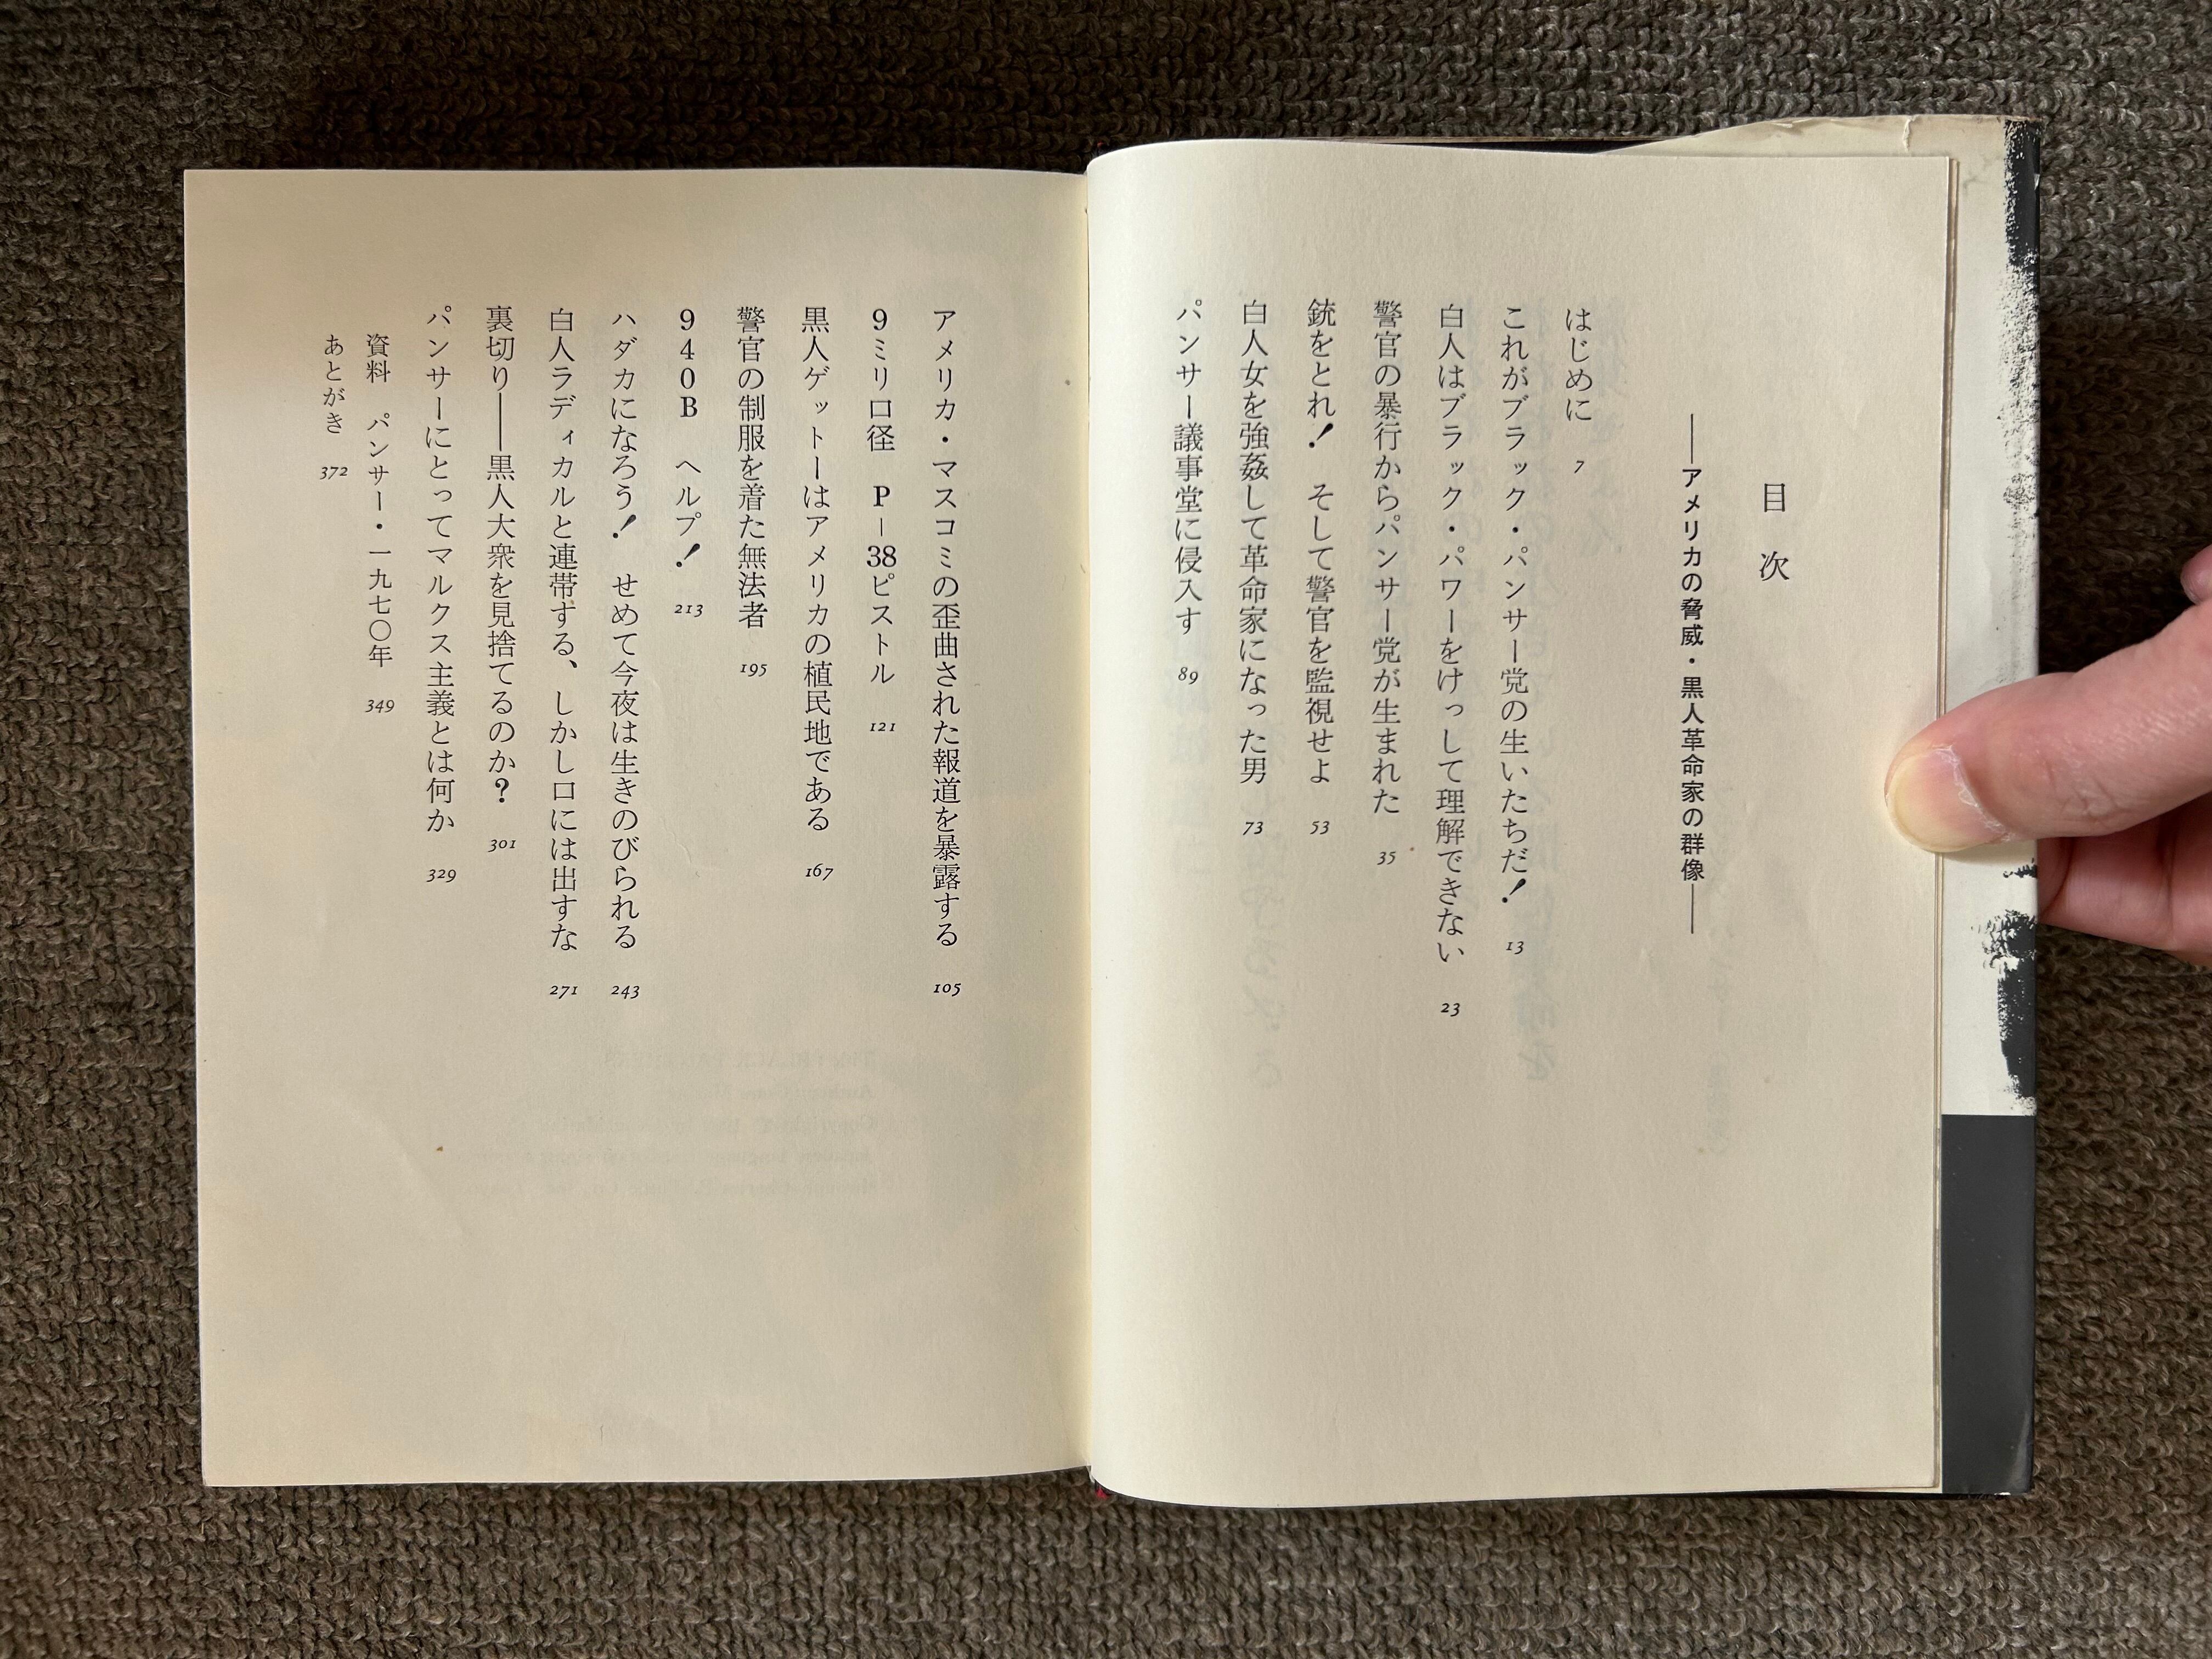 目次
――アメリカの脅威・黒人革命家の群像――
はじめに 7
これがブラック・パンサー党の生いたちだ! 13
白人はブラック・パワーをけっして理解できない 23
警官の暴行からパンサー党が生まれた 35
銃をとれ! そして警官を監視せよ 53
白人女を強姦して革命家になった男 73
パンサー議事堂に侵入す 89
アメリカ・マスコミの歪曲された報道を暴露する 105
9ミリ口径 P–38ピストル 121
黒人ゲットーはアメリカの植民地である 167
警官の制服を着た無法者 195
940B ヘルプ! 213
ハダカになろう! せめて今夜は生きのびられる 243
白人ラディカルと連帯する、しかし口には出すな 271
裏切り――黒人大衆を見捨てるのか? 301
パンサーにとってマルクス主義とは何か 329
資料 パンサー・一九七〇年 349
あとがき 372